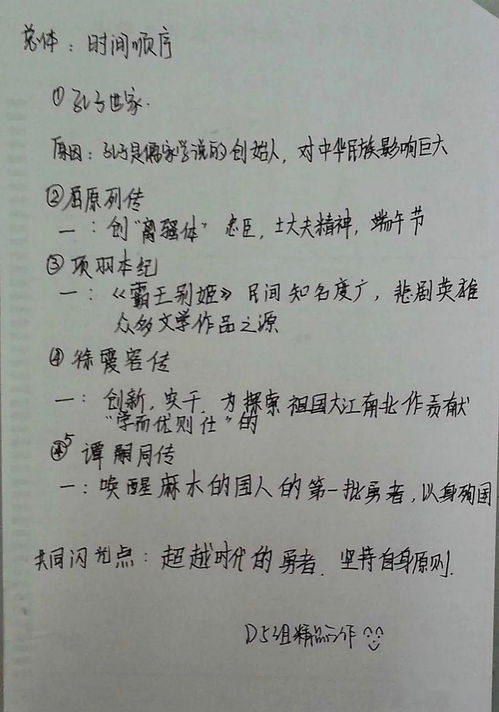 总体：时间顺序
①孔子世家.
原因：孔子是儒家学说的创始人，对中华民族影响巨大
②屈原列传
一：创“离骚体” 忠臣，士大夫精神，端午节
③项羽本纪
一：《霸王别姬》民间知名度广，悲剧英雄
众多文学作品之源
④徐霞客传
一：创新，实干，为探索祖国大江南北作贡献
“学而优则仕”的
5 谭嗣同传
一：唤醒麻木的国人的第一批勇者，以身殉国
共同闪光点：超越时代的勇者. 坚持自身原则.
D5组精品作